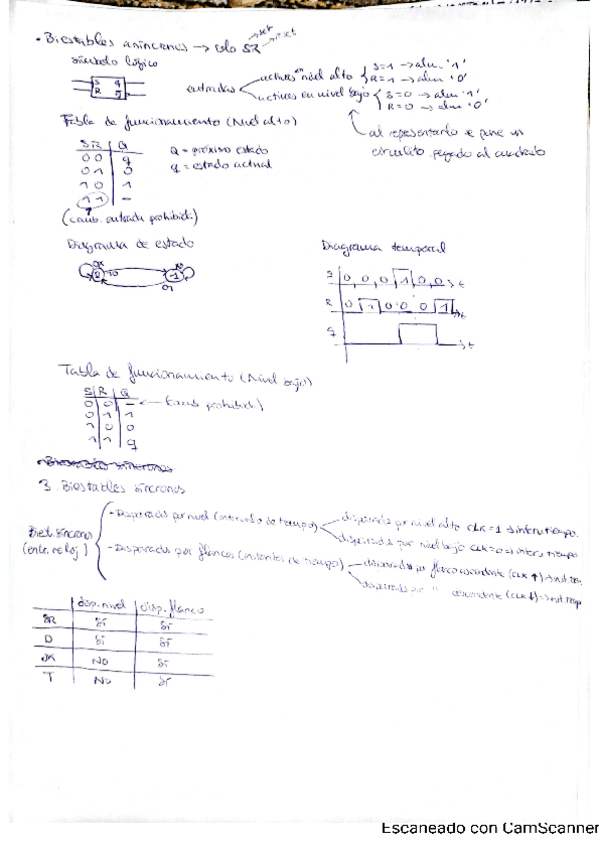 • Biestables asíncronos → solo SR → set → reset
símbolo lógico
S q
R q̅
entradas
activas en nivel alto { S=1 → alm. '1'
R=1 → alm '0'
activas en nivel bajo { S=0 → alm. '1'
R=0 → alm '0'
al representarlo se pone un
circulito pegado al cuadrado
Tabla de funcionamiento (Nivel alto)
S R | Q
0 0 | q
0 1 | 0
1 0 | 1
1 1 | –
Q = próximo estado
q = estado actual
(comb. entrada prohibida)
Diagrama de estado
10
1
01
Diagrama temporal
S 0 0 0 1 0 0 t
R 0 1 0 0 0 1 t
q t
Tabla de funcionamiento (Nivel bajo)
S | R | Q
0 0 – ← (comb prohibida)
0 1 1
1 0 0
1 1 q
3. Biestables síncronos
Biest. síncronos
(entr. reloj)
- Disparados por nivel (intervalo de tiempo)
disparados por nivel alto CLK = 1 → interv tiempo.
disparados por nivel bajo CLK=0 → interv tiempo
- Disparados por flancos (instantes de tiempo)
disparados por flanco ascendente (CLK ↑) → inst tiem
disparados por " descendente (CLK ↓) → inst tiemp
| disp. nivel | disp. flanco
SR | Sí | Sí
D | Sí | Sí
JK | NO | Sí
T | NO | Sí
Escaneado con CamScanner